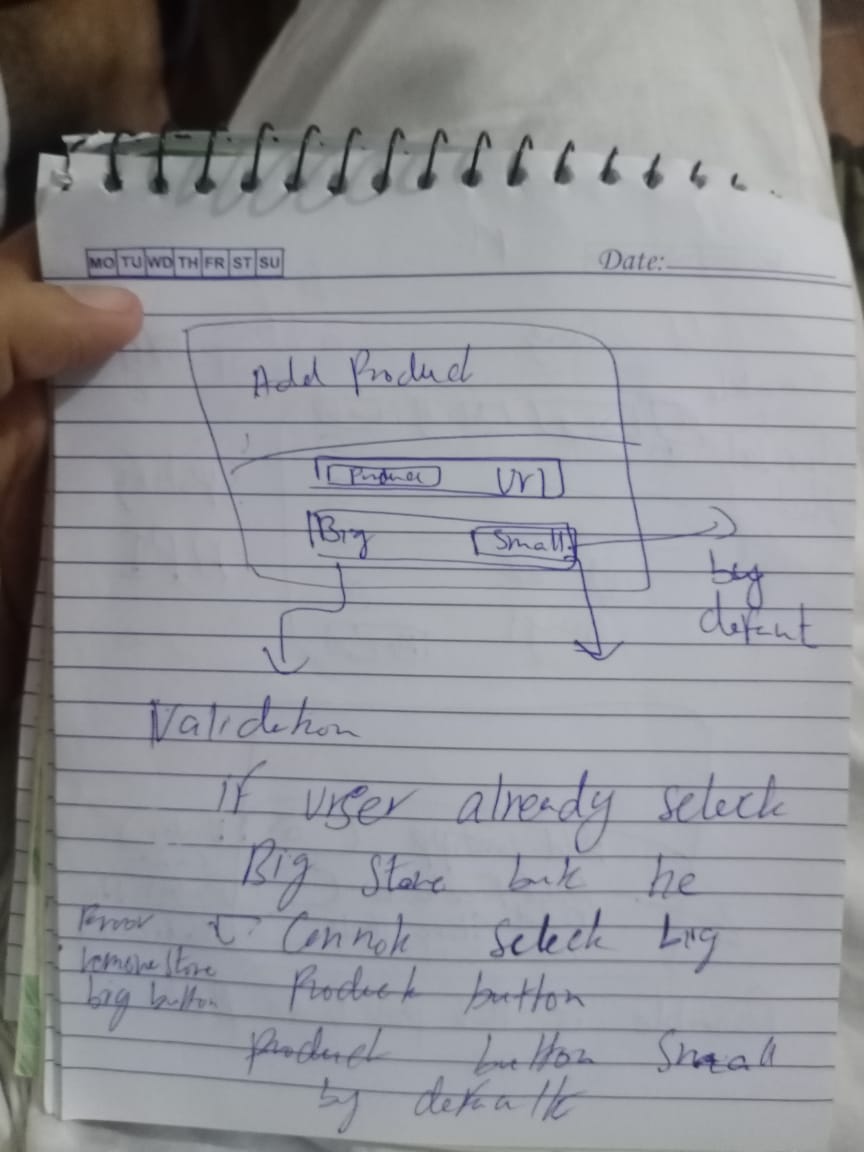 MO TU WD TH FR ST SU
Date:
Add Product
Product Url
Big Small
by
defaut
Validation
if user already select
Big Store but he
Error Cannot select big
remove store
big button Product button
product button Small
by default